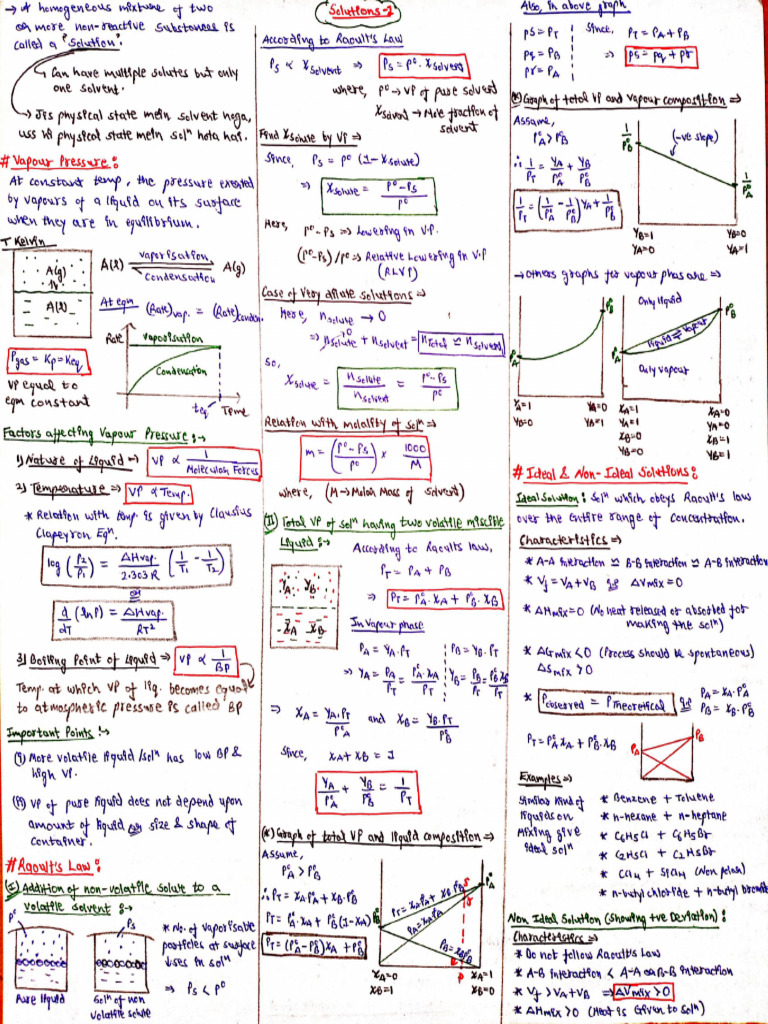 Solutions-1
→ A homogeneous mixture of two
or more non-reactive substances is
called a "Solution".
↳ Can have multiple solutes but only
one solvent.
→ Jis physical state mein solvent hoga,
uss hi physical state mein solⁿ hota hai.
# Vapour Pressure:
At constant temp, the pressure exerted
by vapours of a liquid on its surface
when they are in equilibrium.
T Kelvin
A(g)
A(l)
A(l) vaporisation ⇌ condensation A(g)
At eqm (Rate)vap. = (Rate)conden.
Rate
vaporisation
Condensation
teq Time
Pgas = Kp = Keq
VP equal to
eqm constant
Factors affecting Vapour Pressure :→
1) Nature of Liquid ⇒ VP ∝ 1/Molecular Forces
2) Temperature ⇒ VP ∝ Temp.
* Relation with temp is given by Clausius
Clapeyron Eqⁿ.
log (P2/P1) = ΔHvap./2.303 R (1/T1 - 1/T2)
or
d/dT (ln P) = ΔHvap./RT²
3) Boiling Point of Liquid ⇒ VP ∝ 1/BP
Temp. at which VP of liq. becomes equal
to atmospheric pressure is called BP
Important Points :→
(i) More volatile liquid/solⁿ has low BP &
high VP.
(ii) VP of pure liquid does not depend upon
amount of liquid size & shape of
container.
# Raoult's Law :
(I) Addition of non-volatile solute to a
volatile solvent :→
P°
Ps
Pure liquid
Solⁿ of non
volatile solute
* No. of vaporisable
particles at surface
in solⁿ
⇒ Ps < P°
According to Raoult's Law
Ps ∝ Xsolvent ⇒ Ps = P°.Xsolvent
where, P° → VP of pure solvent
Xsolvent → Mole fraction of
solvent
Find Xsolute by VP ⇒
Since, Ps = P° (1-Xsolute)
⇒ Xsolute = P°-Ps/P°
Here, P°-Ps ⇒ Lowering in V.P.
(P°-Ps)/P° ⇒ Relative Lowering in V.P
(RLVP)
Case of Very dilute solutions ⇒
Here, nsolute → 0
⇒ nsolute→0 + nsolvent = nTotal ≃ nsolvent
So,
Xsolute = nsolute/nsolvent = P°-Ps/P°
Relation with molality of solⁿ
m = (P°-Ps/P°) × 1000/M
where, (M → Molar Mass of solvent)
(II) Total VP of solⁿ having two volatile miscible
Liquid :→
YA YB
XA XB
According to Raoults law,
PT = PA + PB
⇒ PT = P°A.XA + P°B.XB
In Vapour phase
PA = YA.PT | PB = YB.PT
⇒ YA = PA/PT = P°A.XA/PT | YB = PB/PT = P°B.XB/PT
⇒ XA = YA.PT/P°A and XB = YB.PT/P°B
Since, XA + XB = 1
YA/P°A + YB/P°B = 1/PT
(*) Graph of total VP and liquid composition ⇒
Assume,
P°A > P°B
∴ PT = XA P°A + XB.P°B
PT = P°A.XA + P°B (1-XA)
PT = (P°A-P°B)XA + P°B
P°B
PT = XA P°A + XB P°B
PA = XA P°A
PB = XB P°B
S
r
q
P
P°A
XA=0 XA=1
XB=1 XB=0
Also, in above graph
PS = PT | Since, PT = PA + PB
Pq = PB | ⇒ PS = Pq + Pr
Pr = PA
(*) Graph of total VP and vapour composition ⇒
Assume,
P°A > P°B
∴ 1/PT = YA/P°A + YB/P°B
1/PT = (1/P°A - 1/P°B) YA + 1/P°B
1/P°B
(-ve slope)
1/P°A
YB=1 YB=0
YA=0 YA=1
→ Others graphs for vapour phas are ⇒
P°A
P°B
YA=1 YA=0
YB=0 YB=1
Only liquid
liquid ⇌ vapour
Only vapour
P°A
P°B
XA=1 XA=0
YA=1 YA=0
XB=0 XB=1
YB=0 YB=1
# Ideal & Non-Ideal Solutions :
Ideal Solution : Solⁿ which obeys Raoult's law
over the entire range of concentration.
Characteristics ⇒
* A-A interaction ≃ B-B interaction ≃ A-B interaction
* Vf = VA + VB ΔVmix = 0
* ΔHmix = 0 (No heat released or absorbed for
making the solⁿ)
* ΔGmix < 0 (Process should be spontaneous)
ΔSmix > 0
* Pobserved = PTheoretical
PA = XA.P°A
PB = XB.P°B
PT = P°A XA + P°B.XB
PA
PB
Examples ⇒
Similar kind of
liquids on
mixing give
ideal solⁿ
* Benzene + Toluene
* n-hexane + n-heptane
* C6H5Cl + C6H5Br
* C2H5Cl + C2H5Br
* CCl4 + SiCl4 (Non polar)
* n-butyl chloride + n-butyl bromide
Non Ideal Solution (Showing +ve Deviation) :
Characteristics ⇒
* Do not follow Raoult's Law
* A-B interaction < A-A or B-B interaction
* Vf > VA + VB ⇒ ΔVmix > 0
* ΔHmix > 0 (Heat is Given to solⁿ)